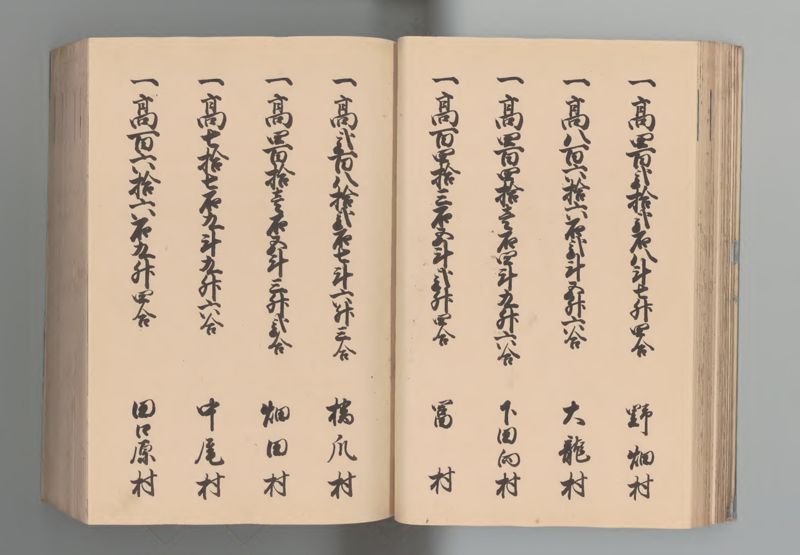 一高四百弐拾弐石八斗七升四合 野畑村
一高八百六拾六石弐斗五升六合 大龍村
一高四百四拾壱石四斗九升六合 下田向村
一高百四拾三石五斗弐升四合 冨村
一高弐百八拾弐石七斗六升三合 橋爪村
一高四百拾壱石五斗三升弐合 畑田村
一高七拾七石九斗九升六合 中尾村
一高百六拾六石九升四合 田口原村